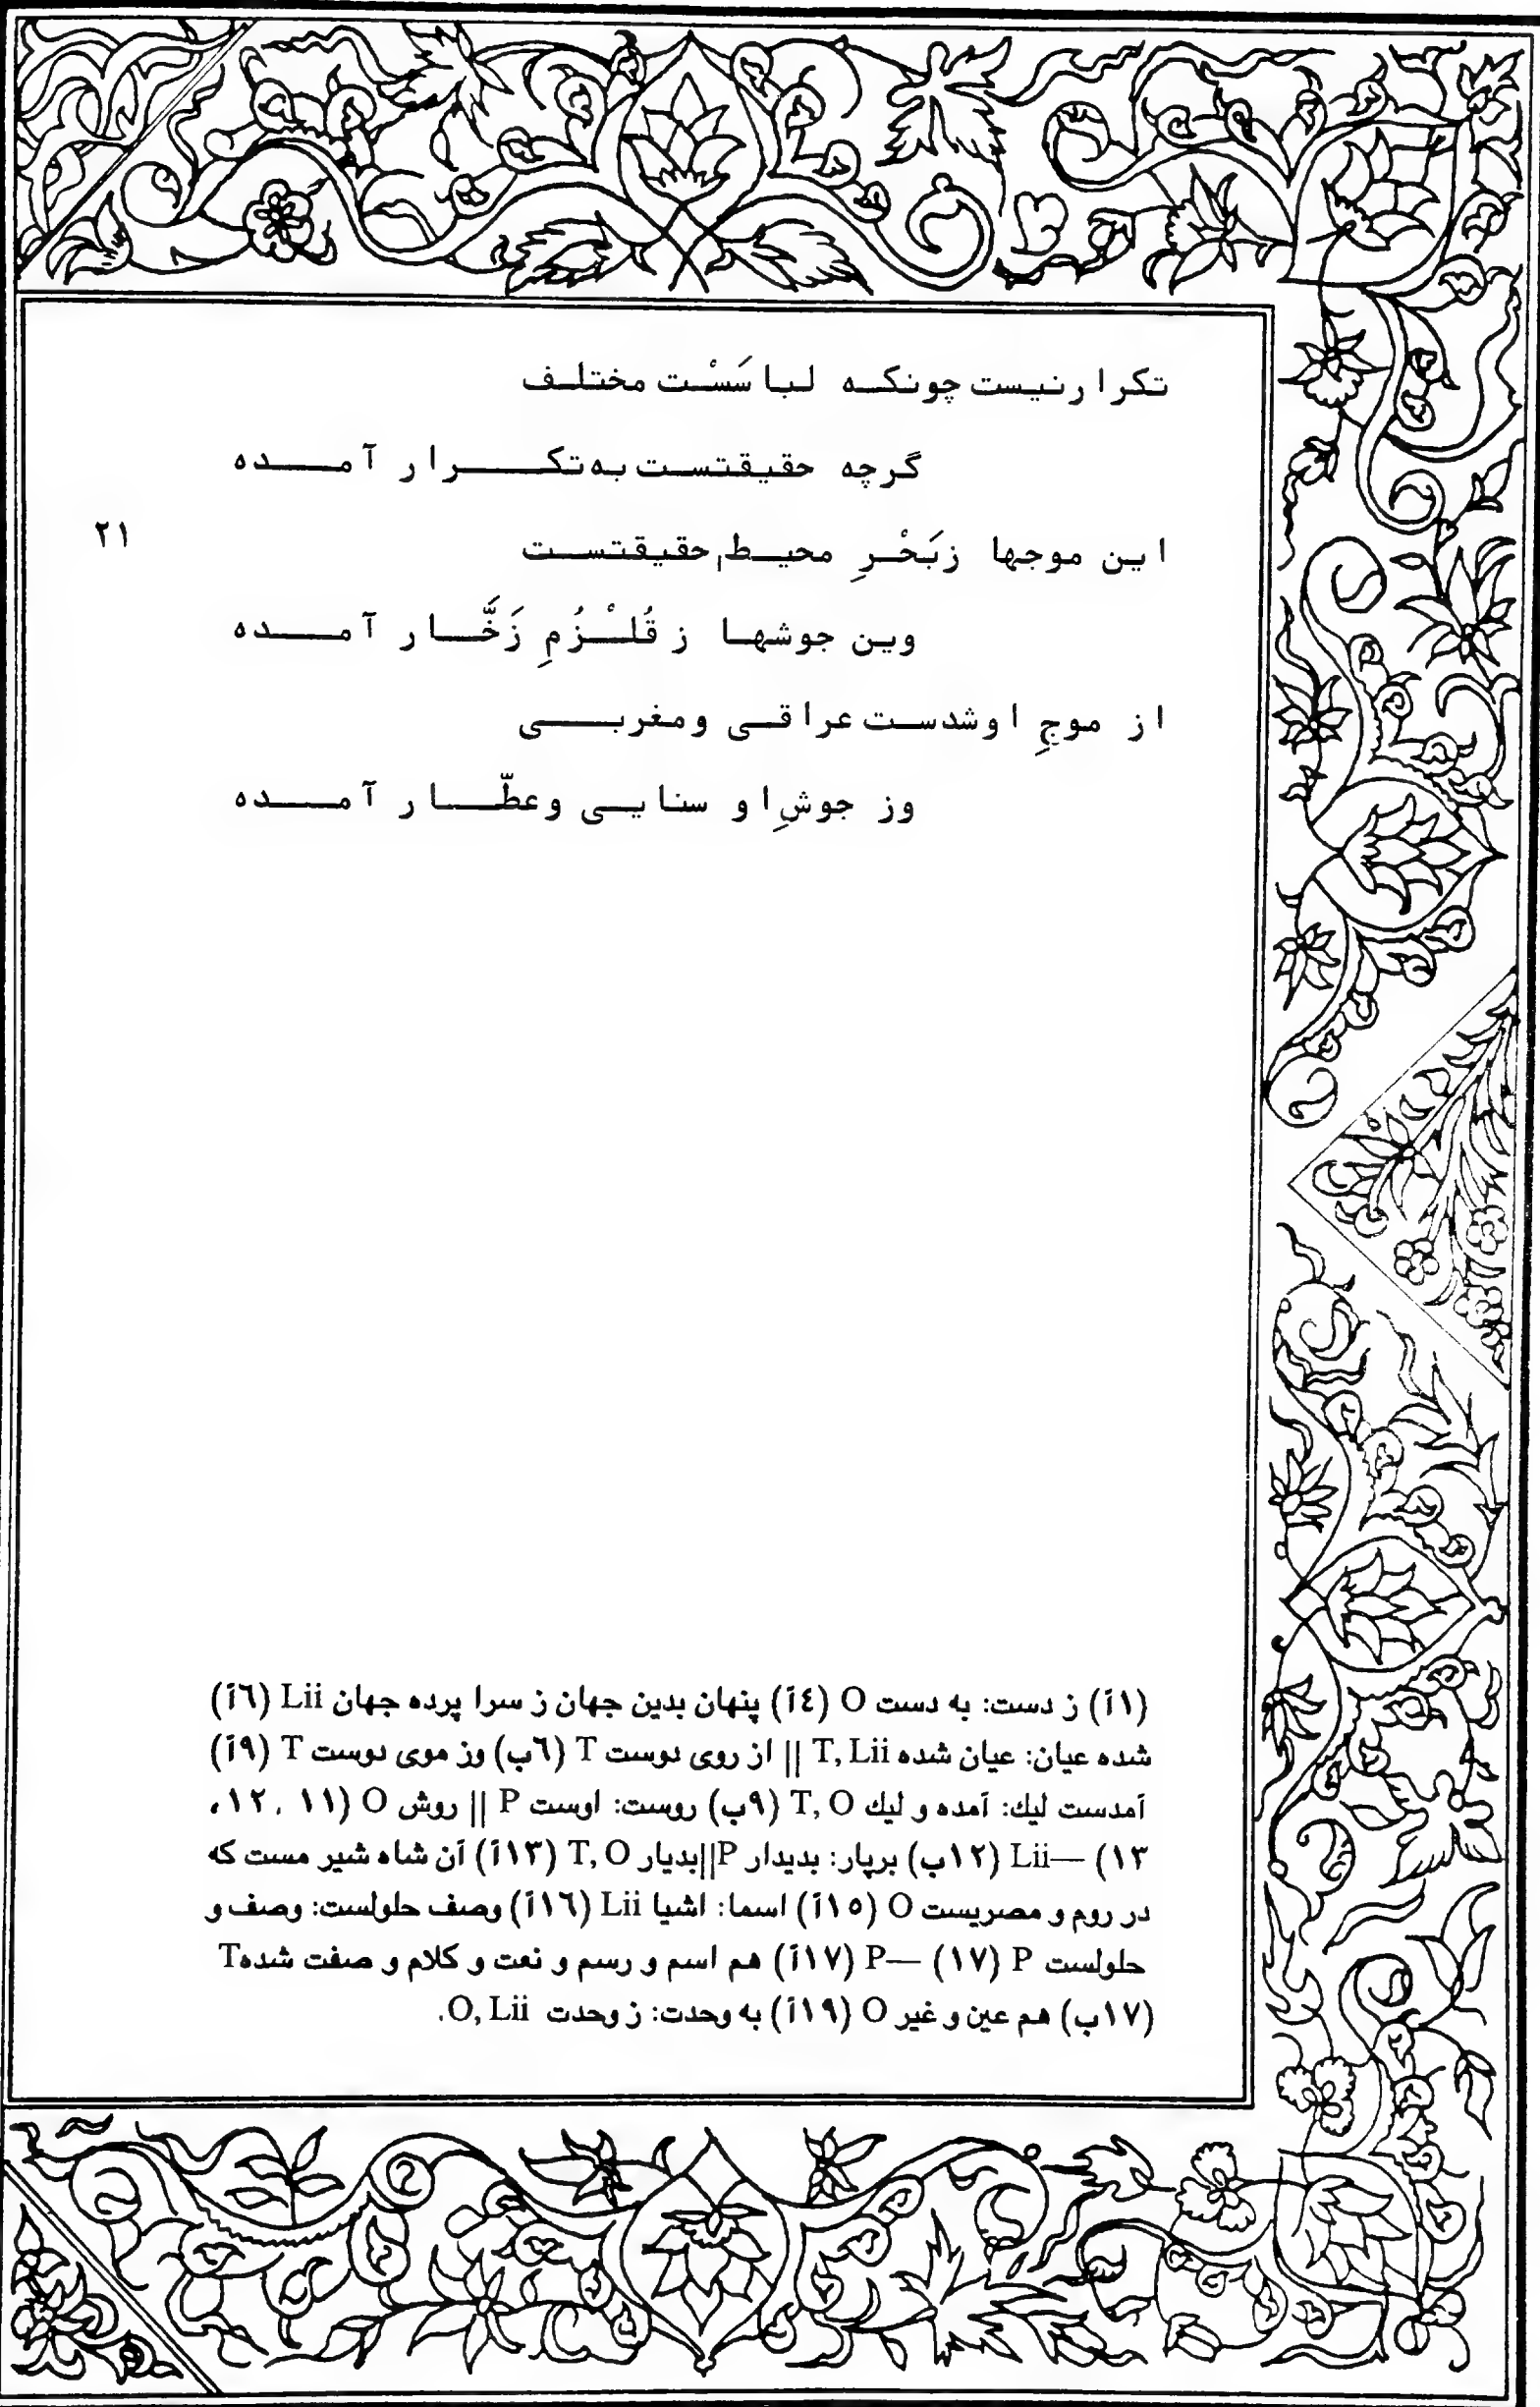 تکرارنیست چونکه لباسَسْت مختلف
گرچه حقیقتست به‌تکرار آمده
۲۱
این موجها زبَحْرِ محیط حقیقتست
وین جوشها ز قُلْزُمِ زَخَّار آمده
از موجِ اوشدست عراقی ومغربی
وز جوشِ او سنایی وعطّار آمده
(۱آ) ز دست: به دست O (٤آ) پنهان بدین جهان ز سرا پرده جهان Lii (٦آ)
شده عیان: عیان شده T, Lii || از روی دوست T (٦ب) وز موی دوست T (۹آ)
آمدست لیك: آمده و لیك T, O (۹ب) روست: اوست P || روش O (۱۱، ۱۲،
۱۳) —Lii (۱۲ب) برپار: بدیدار P||بدیار T, O (۱۳آ) آن شاه شیر مست که
در روم و مصریست O (۱٥آ) اسما: اشیا Lii (۱٦آ) وصف حلولست: وصف و
حلولست P (۱۷) —P (۱۷آ) هم اسم و رسم و نعت و کلام و صفت شده T
(۱۷ب) هم عین و غیر O (۱۹آ) به وحدت: ز وحدت O, Lii.